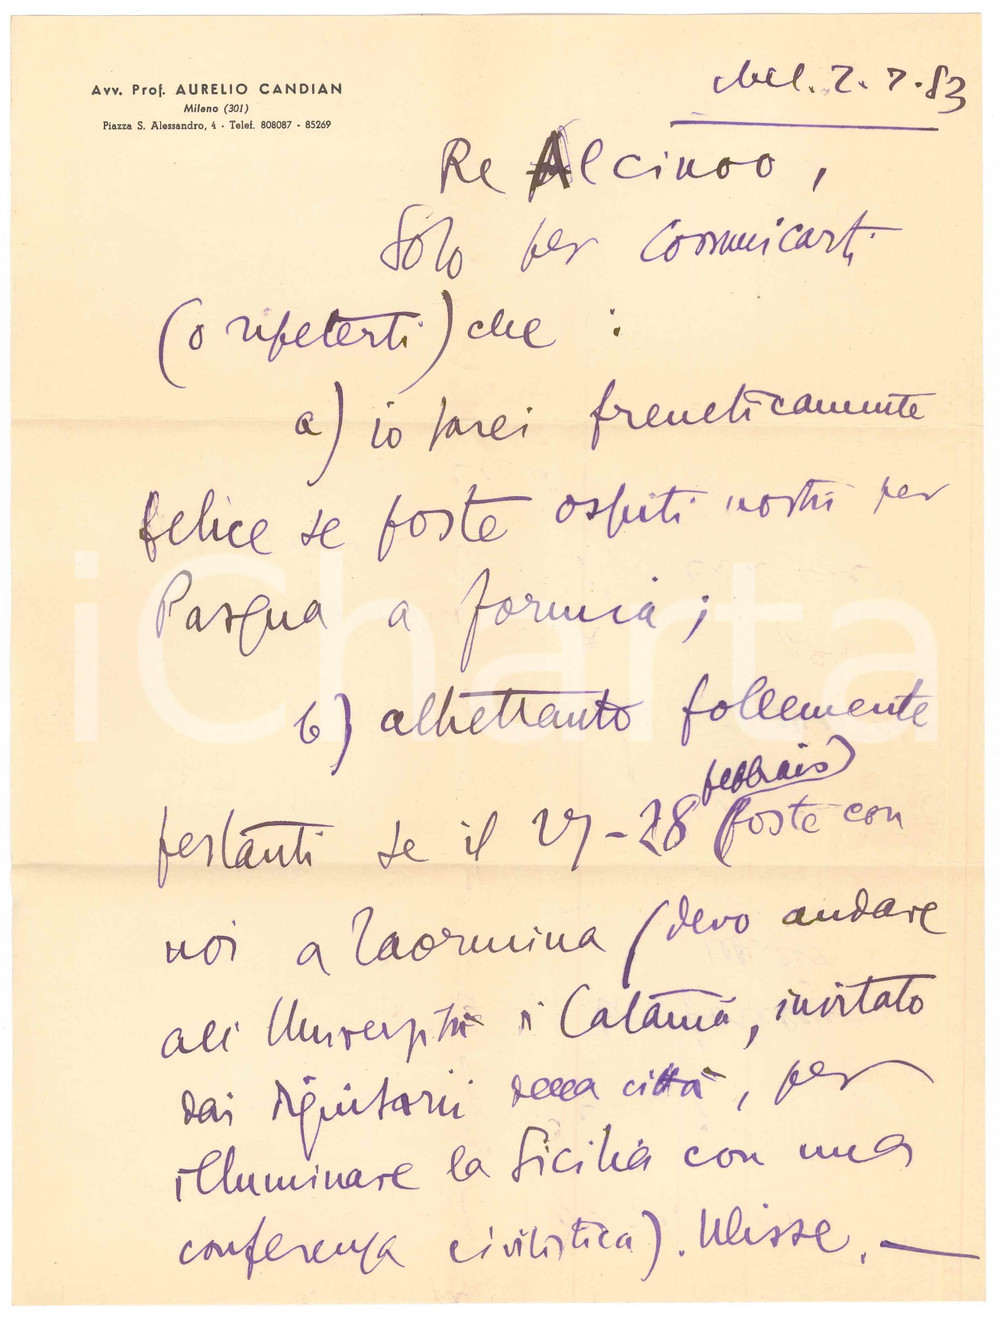 Avv. Prof. AURELIO CANDIAN
Milano (301)
Piazza S. Alessandro, 4 - Telef. 808087 - 85269
Mil. 2.2.63
Re Alcinoo,
Solo per comunicarti
(o ripeterti) che :
a) io sarei freneticamente
felice se foste ospiti nostri per
Pasqua a Formia;
b) altrettanto follemente
febbraio)
festanti se il 27-28 (foste con
noi a Taormina (devo andare
all'Università di Catania, invitato
dai dignitarii della città, per
illuminare la Sicilia con una
conferenza civilistica). Ulisse.
iCharta